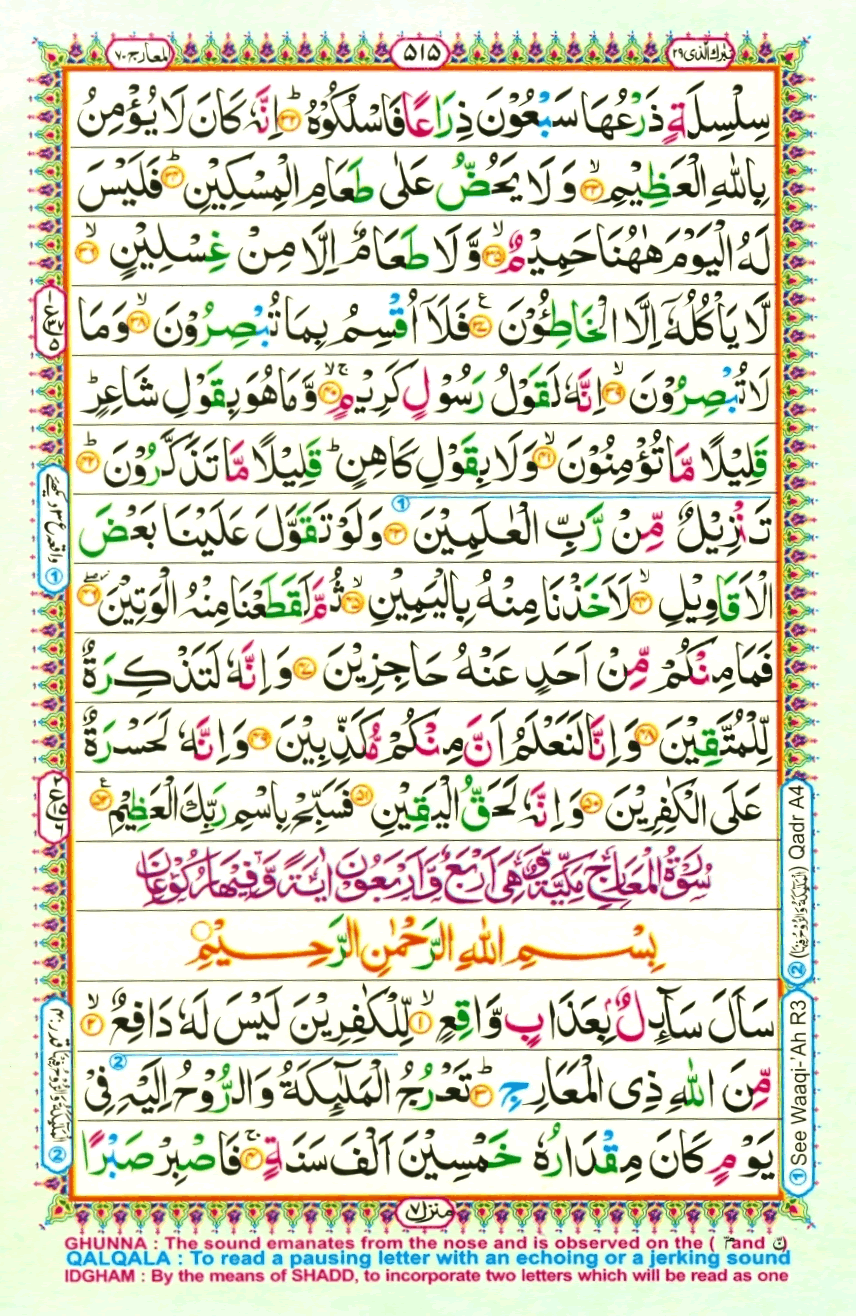 تبرك الذی ۲۹
۵۱۵
المعارج ۷۰
سِلْسِلَةٍ ذَرْعُهَا سَبْعُوْنَ ذِرَاعًا فَاسْلُكُوْهُ ؕ۳۲ اِنَّهٗ كَانَ لَا يُؤْمِنُ
بِاللّٰهِ الْعَظِيْمِ ۙ۳۳ وَ لَا يَحُضُّ عَلٰى طَعَامِ الْمِسْكِيْنِ ؕ۳۴ فَلَيْسَ
لَهُ الْيَوْمَ هٰهُنَا حَمِيْمٌ ۙ۳۵ وَّ لَا طَعَامٌ اِلَّا مِنْ غِسْلِيْنٍ ۙ۳۶
لَّا يَاْكُلُهٗۤ اِلَّا الْخَاطِـُٔوْنَ ۳۷ فَلَاۤ اُقْسِمُ بِمَا تُبْصِرُوْنَ ۙ۳۸ وَ مَا
لَا تُبْصِرُوْنَ ۙ۳۹ اِنَّهٗ لَقَوْلُ رَسُوْلٍ كَرِيْمٍ ۚۙ۴۰ وَّ مَا هُوَ بِقَوْلِ شَاعِرٍ ؕ
قَلِيْلًا مَّا تُؤْمِنُوْنَ ۙ۴۱ وَ لَا بِقَوْلِ كَاهِنٍ ؕ قَلِيْلًا مَّا تَذَكَّرُوْنَ ؕ۴۲
تَنْزِيْلٌ مِّنْ رَّبِّ الْعٰلَمِيْنَ ۴۳ وَ لَوْ تَقَوَّلَ عَلَيْنَا بَعْضَ
الْاَقَاوِيْلِ ۙ۴۴ لَاَخَذْنَا مِنْهُ بِالْيَمِيْنِ ۙ۴۵ ثُمَّ لَقَطَعْنَا مِنْهُ الْوَتِيْنَ ۴۶
فَمَا مِنْكُمْ مِّنْ اَحَدٍ عَنْهُ حَاجِزِيْنَ ۴۷ وَ اِنَّهٗ لَتَذْكِرَةٌ
لِّلْمُتَّقِيْنَ ۴۸ وَ اِنَّا لَنَعْلَمُ اَنَّ مِنْكُمْ مُّكَذِّبِيْنَ ۴۹ وَ اِنَّهٗ لَحَسْرَةٌ
عَلَى الْكٰفِرِيْنَ ۵۰ وَ اِنَّهٗ لَحَقُّ الْيَقِيْنِ ۵۱ فَسَبِّحْ بِاسْمِ رَبِّكَ الْعَظِيْمِ ۵۲
سُوْرَةُ الْمَعَارِجِ مَكِّيَّةٌ وَّ هِيَ اَرْبَعٌ وَّ اَرْبَعُوْنَ اٰيَةً وَّ فِيْهَا رُكُوْعَانِ
بِسْمِ اللّٰهِ الرَّحْمٰنِ الرَّحِيْمِ
سَاَلَ سَآئِلٌۢ بِعَذَابٍ وَّاقِعٍ ۙ۱ لِّلْكٰفِرِيْنَ لَيْسَ لَهٗ دَافِعٌ ۙ۲
مِّنَ اللّٰهِ ذِى الْمَعَارِجِ ؕ۳ تَعْرُجُ الْمَلٰٓئِكَةُ وَ الرُّوْحُ اِلَيْهِ فِىْ
يَوْمٍ كَانَ مِقْدَارُهٗ خَمْسِيْنَ اَلْفَ سَنَةٍ ۚ۴ فَاصْبِرْ صَبْرًا
منزل ۷
① See Waaqi-'Ah R3
② Qadr A4
GHUNNA : The sound emanates from the nose and is observed on the ( مّ and نّ )
QALQALA : To read a pausing letter with an echoing or a jerking sound
IDGHAM : By the means of SHADD, to incorporate two letters which will be read as one